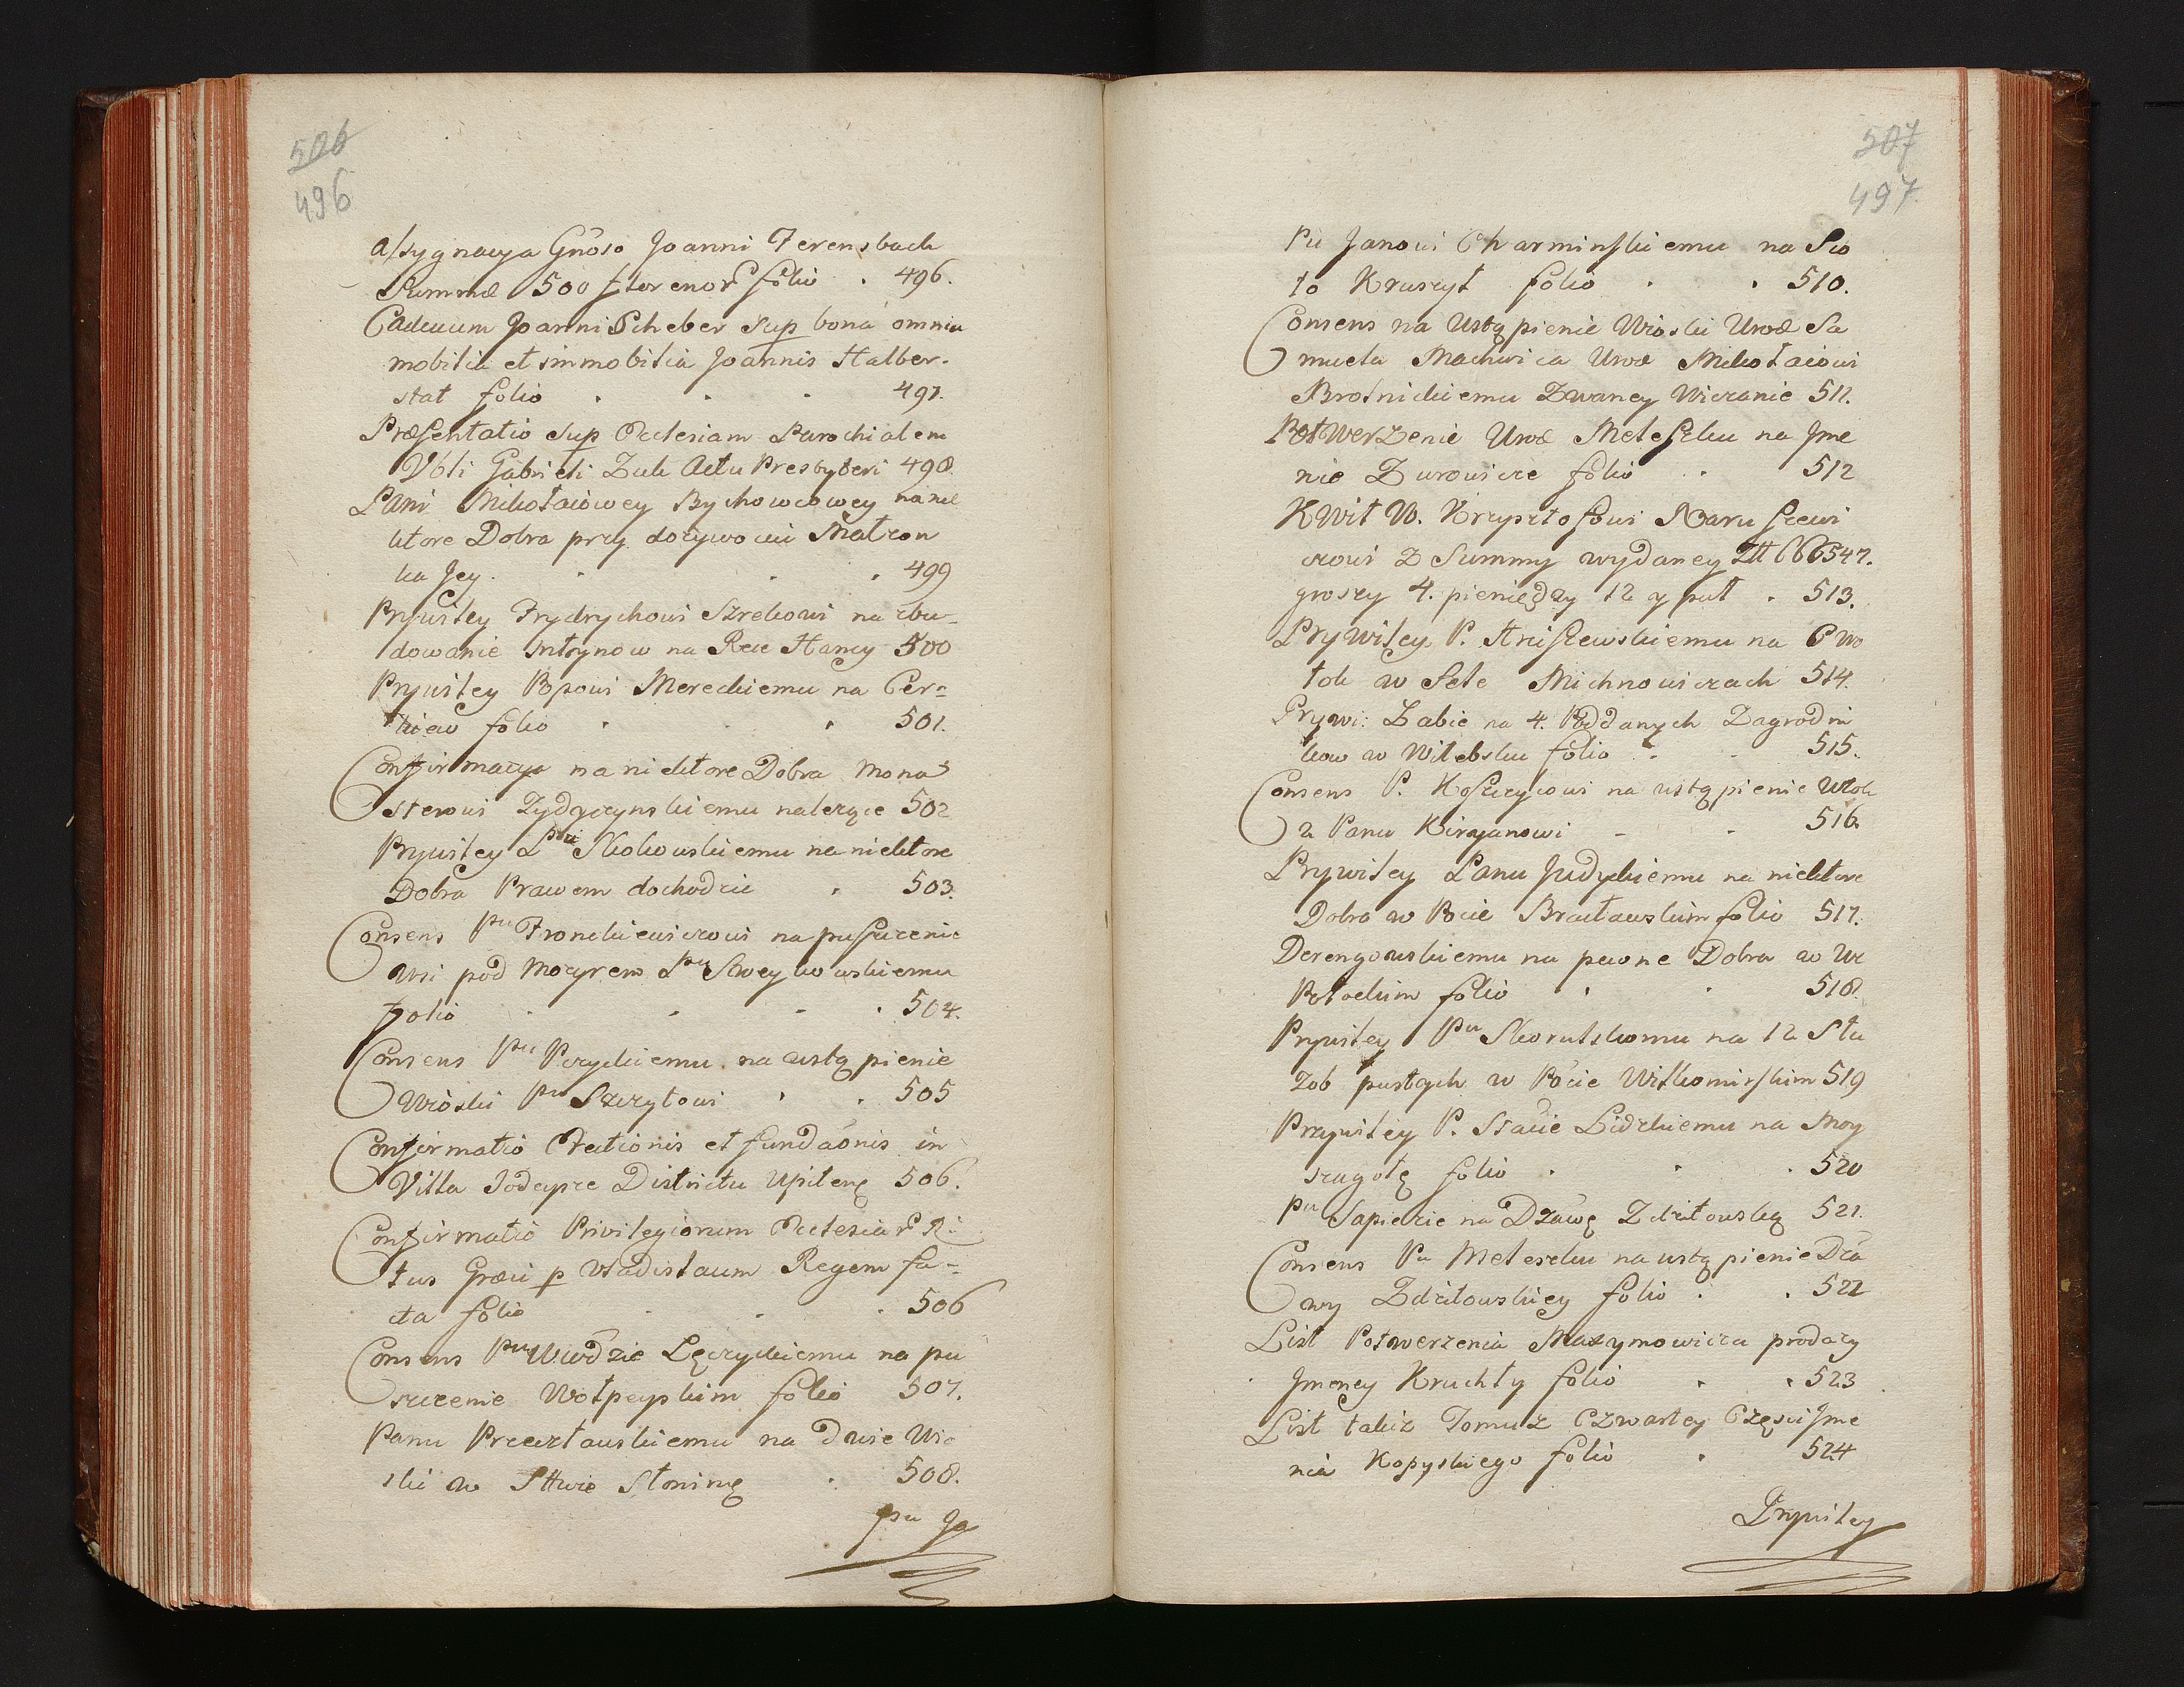 506
496
Assygnacya Gnoso Joanni Ferensbach
Summæ 500 florenor folio . 496.
Caducum Joanni Scheber sup bona omnia
mobilia et immobilia Joannis Halber-
stat folio . . . 497.
Præsentatio sup Ecclesiam Parochialem
Vbli Gabrieli Zuk Actu Presbyteri 498
Pani Mikołaiowey Bychowcowey na nie
ktore Dobra przy dożywociu Małżon
ka Jey . . . 499
Przywiley Frydrychowi Szrekowi na zbu-
dowanie Młynow na Rece Hancy 500
Przywiley Popowi Mereckiemu na Cer-
kiew folio . . . 501.
Confirmacya na niektore Dobra Mona
sterowi Zydyczynskiemu należące 502
Przywiley Pnu Skokowskiemu na niektore
Dobra Prawem dochodzic . 503.
Consens Pnu Fronckiewiczowi na puszczenie
Wsi pod Mozyrem Pnu Stweykowskiemu
folio . . . . 504.
Consens Pnu Pczyckiemu na ustąpienie
Wioski Pnu Szczytowi . . 505
Confirmatio Erectionis et fundaonis in
Villa Jodcypce Districtu Upitenę 506.
Confirmatio Privilegiorum Ecclesiar Ri
tus Græci p Vładisłaum Regem fa-
cta folio . . . 506
Consens Pnu Wwdzie Lęczyckiemu na pu
szczenie Wołpeyskim folio 507.
Panu Przecławskiemu na Dwie Wio
ski w Sttwie Słonimę . 508.
Pnu Ja
507
497
Pu Janowi Charminskiemu na Sio
ło Kruszył folio . . 510.
Consens na Ustąpienie Wioski Urod Sa
muela Machwica Urod Mikołaiowi
Brolnickiemu Zwaney Wiczanie 511.
Potwerzenie Urod Meleszku na Jme
nie Zurowicze folio . 512
Kwit W. Krzysztofowi Naruszewi
czowi z Summy wydaney Złł 666547.
groszy 4. pieniędzy 12 y puł . 513.
Przywiley P. Aniszewskiemu na 6 wo
łok w Sele Michnowiczach 514.
Przywi: Zabie na 4. Poddanych Zagrodni
kow w Witebsku folio . . 515.
Consens P. Koszczycowi na ustąpienie Włok
2 Panu Kiryanowi - - 516.
Przywiley Panu Judyckiemu na niektore
Dobra w Pocie Bracławskim folio 517.
Derengowskiemu na pewne Dobra w W
Połockim folio . . 518.
Przywiley Pu Skorulskomu na 12 Słu
zob pustych w Pocie Wiłkomirskim 519
Przywiley P. Starie Lidzkiemu na Moy
szagołę folio . . . 520
Pu Sapiezie na Dzawę Zdzitowską 521.
Consens Pu Meleszku na ustąpienie Dza
wy Zdzitowskiey folio . . 522
List Potwerzenia Maxymowicza prodazy
Jmeney Kruchły folio . . 523
List takiz Tomuz Czwartey Częsci Jme
nia Kopyskiego folio . 524
Przywiley